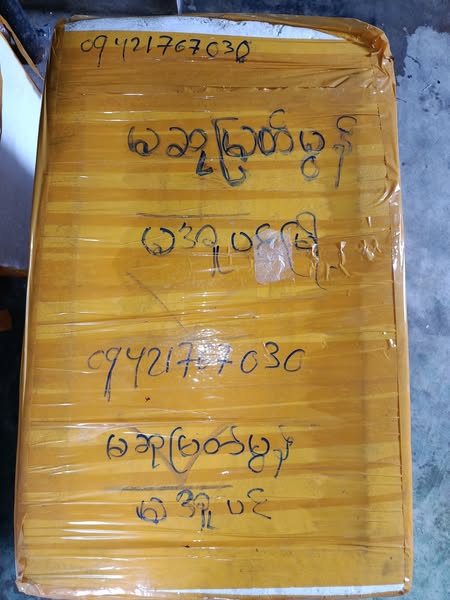 09421767030
မဆုမြတ်မွန်
မအူပင်မြို့
09421767030
မဆုမြတ်မွန်
မအူပင်